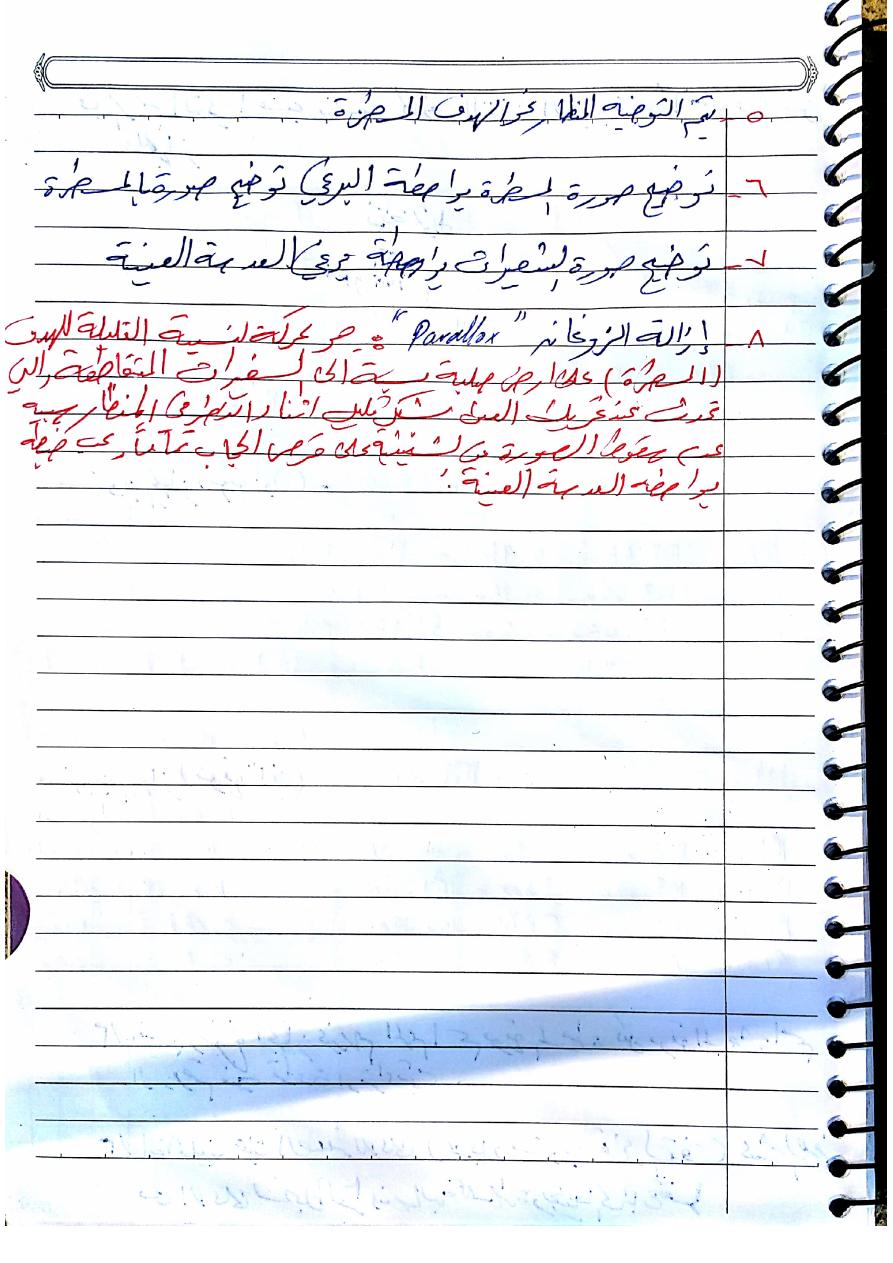 ٥- يتم التوجيه المنظار نحو الهدف المسطرة
٦- توضيح صورة المسطرة بواسطة البرغي توضيح صورة المسطرة
٧- توضيح صورة الشعيرات بواسطة برغي العدسة العينية
٨- إزالة الزوغان "Parallox": هو حركة النسبية القليلة للهدف
(المسطرة) على ارض صلبة نسبة الى الشعيرات المتقاطعة والتي
تحدث عند تحريك العين بشكل قليل اثناء النظر في المنظار بسبب
عدم سقوط الصورة من الشيئية على قرص الحجاب تماماً،
بواسطة العدسة العينية.